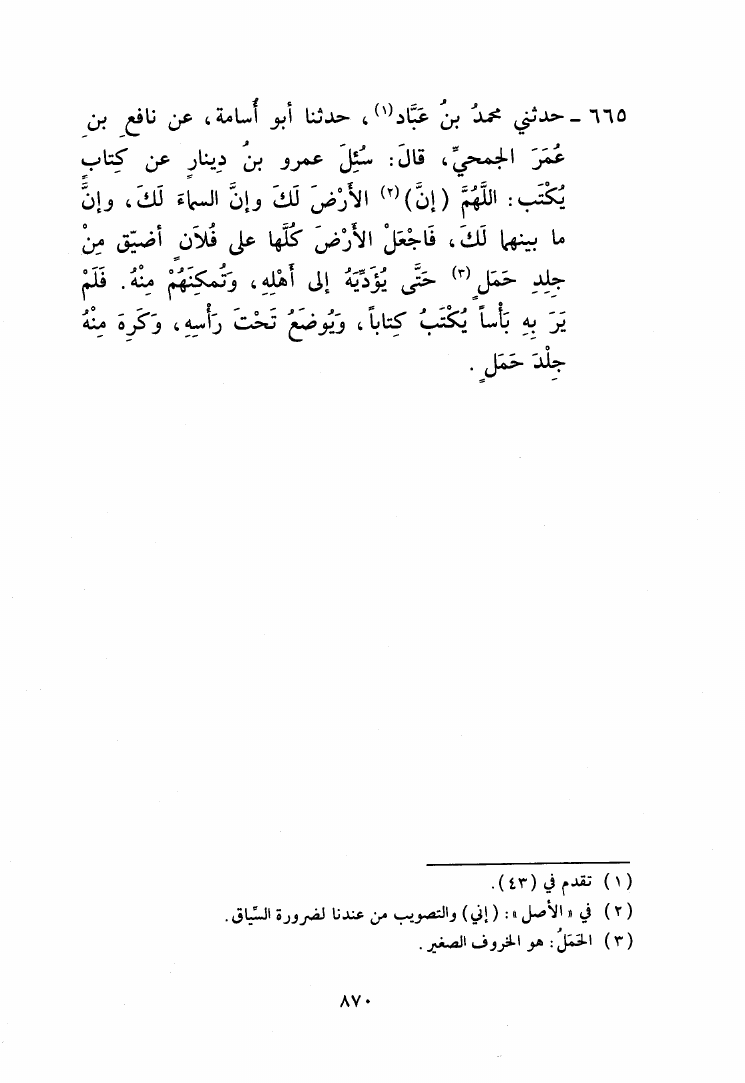 ٦٦٥ - حدثني محمدُ بنُ عَبَّاد(١)، حدثنا أبو أُسامة، عن نافعِ بنِ
عُمَرَ الجمحيِّ، قالَ: سُئِلَ عمرو بنُ دِينارٍ عن كِتابٍ
يُكْتَب: اللَّهُمَّ (إنَّ)(٢) الأَرْضَ لَكَ وإنَّ السماءَ لَكَ، وإنَّ
ما بينهما لَكَ، فَاجْعَلْ الأَرْضَ كُلَّها على فُلاَنٍ أضيّق مِنْ
جِلِدِ حَمَلٍ(٣) حَتَّى يُؤَدِّيَهُ إلى أَهْلِهِ، وَتُمكِنَهُمْ مِنْهُ. فَلَمْ
يَرَ بِهِ بَأْساً يُكْتَبُ كِتاباً، ويُوضَعُ تَحْتَ رَأْسِهِ، وَكَرِهَ مِنْهُ
جِلْدَ حَمَلٍ.
(١) تقدم في (٤٣).
(٢) في «الأصل»: (إني) والتصويب من عندنا لضرورة السِّياق.
(٣) الحَمَلُ: هو الخروف الصغير.
٨٧٠